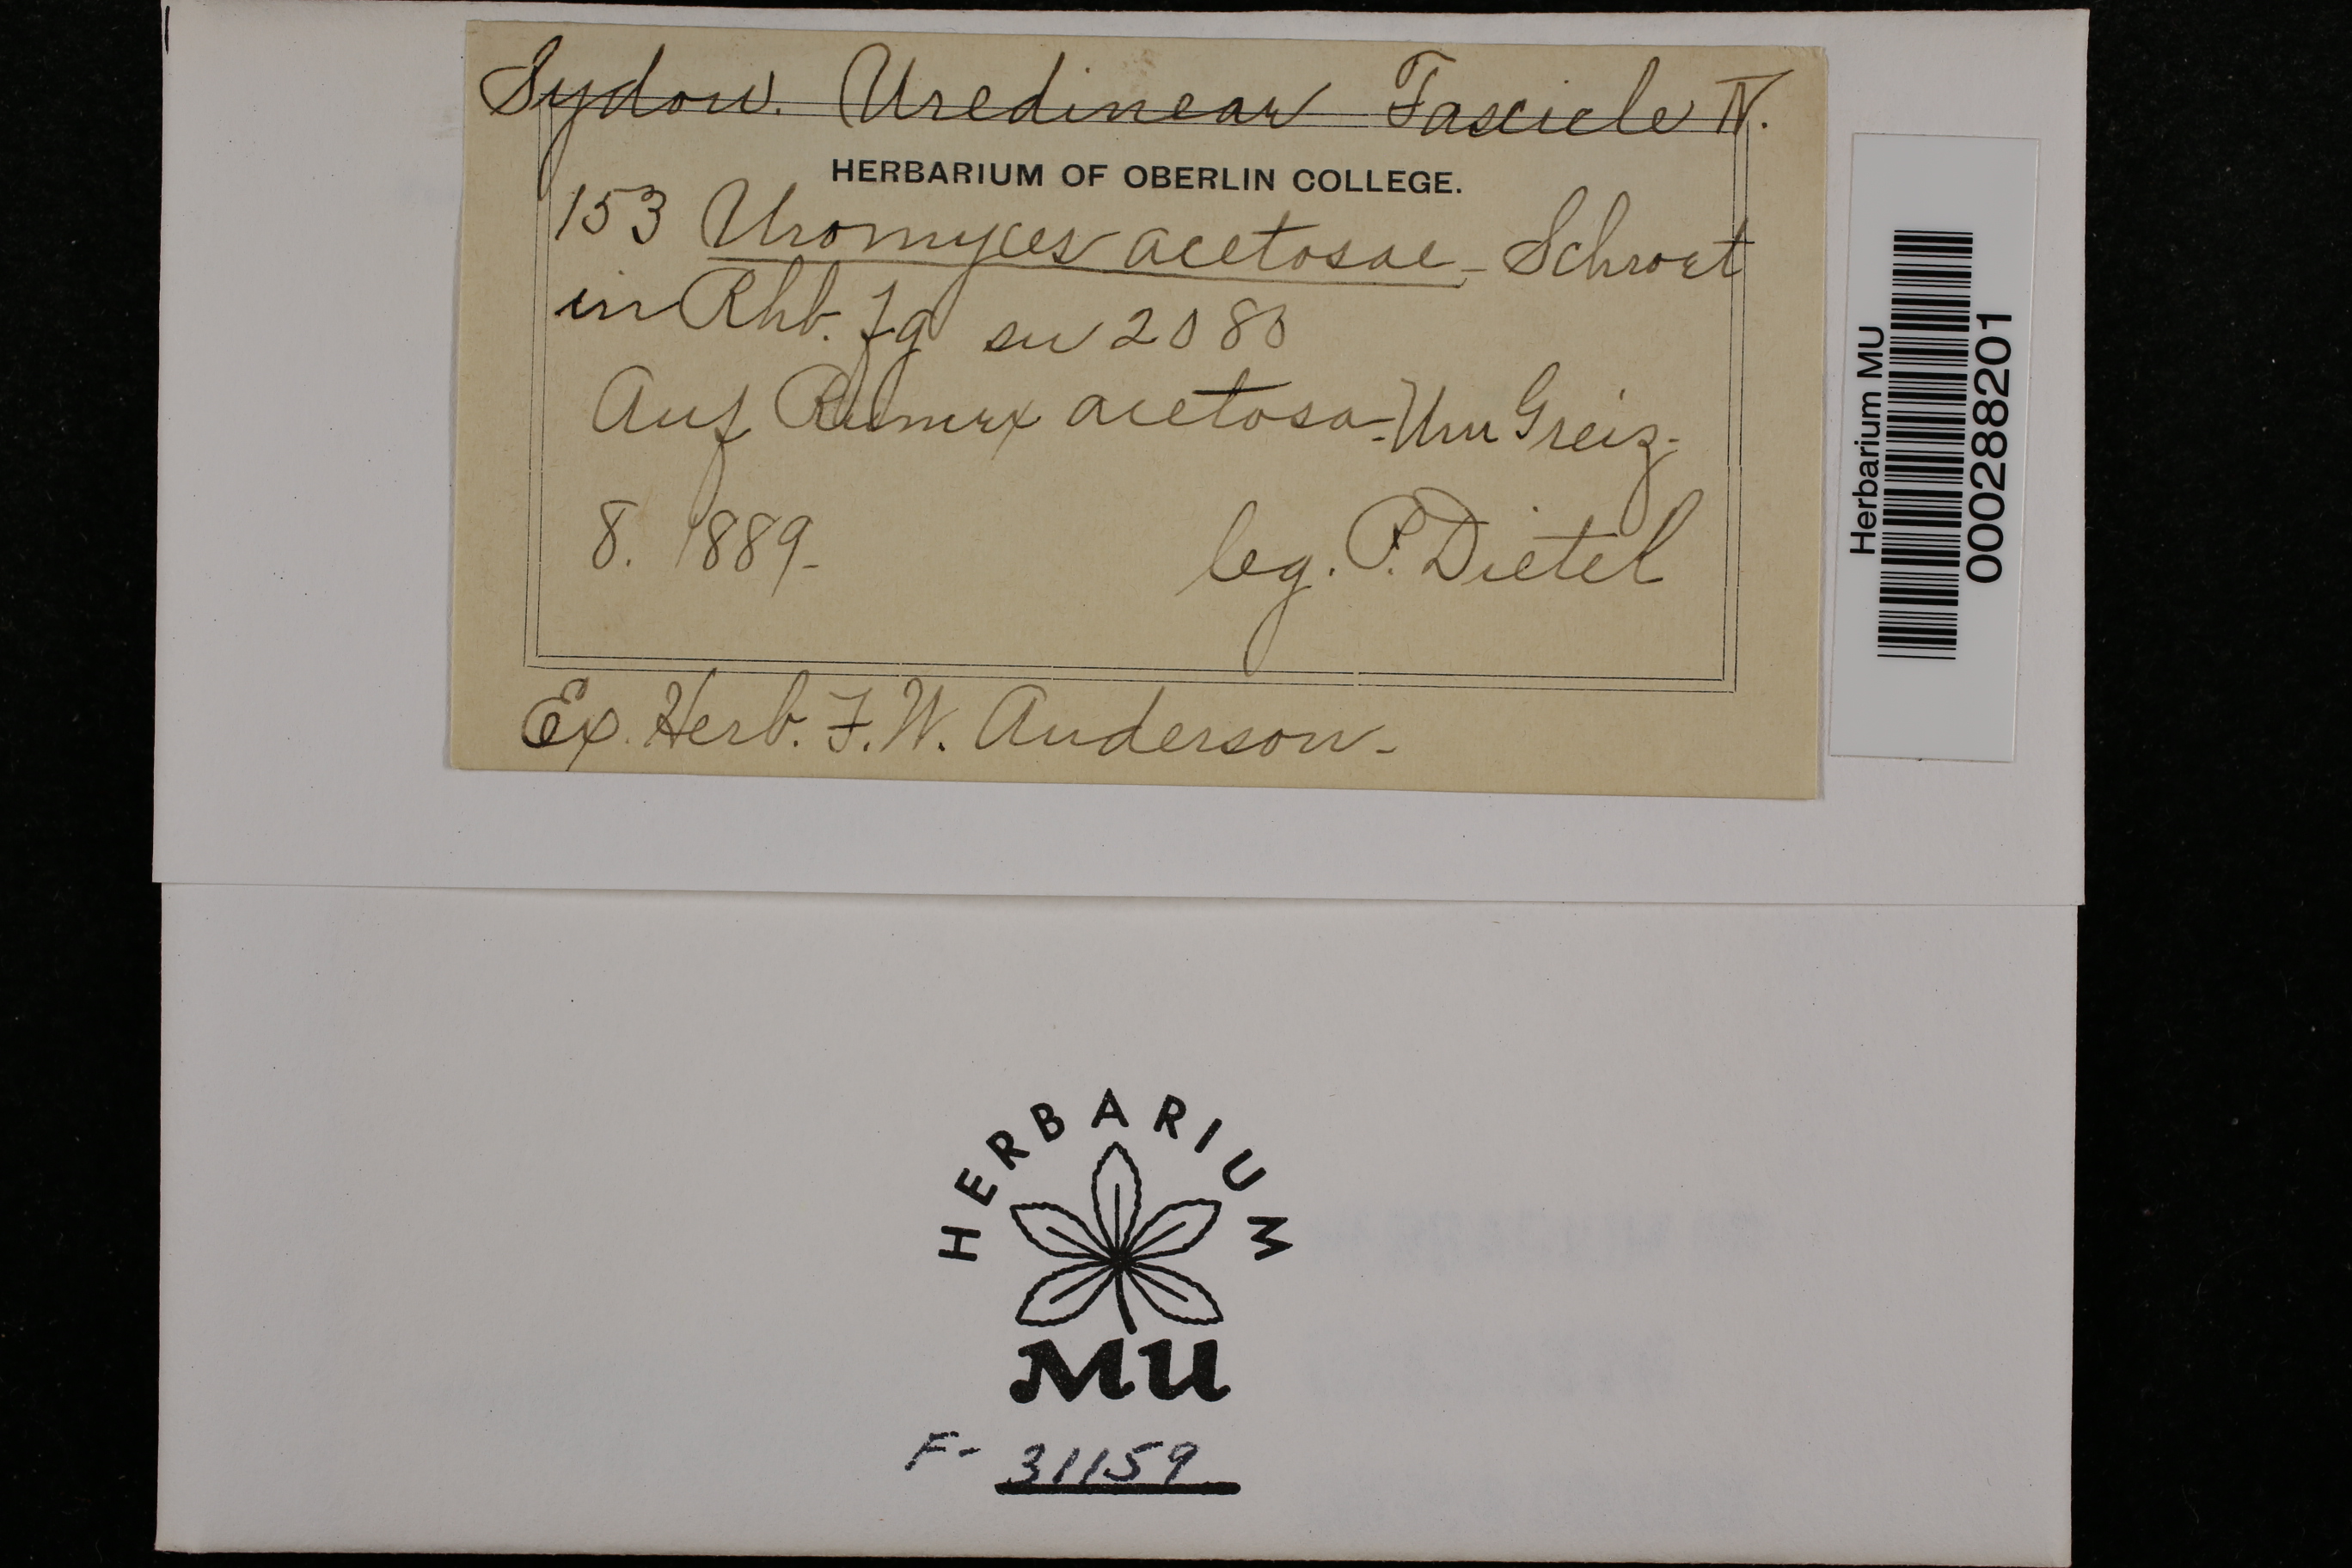 Sydow. Uredineae Fascicle IV.
HERBARIUM OF OBERLIN COLLEGE.
153 Uromyces acetosae - Schroet
in Rhb. Fg eu 2080
Auf Rumex acetosa - Um Greiz -
8. 1889 -
leg. P. Dietel
Ex. Herb. F. W. Anderson -
Herbarium MU
000288201
HERBARIUM
MU
F- 31159